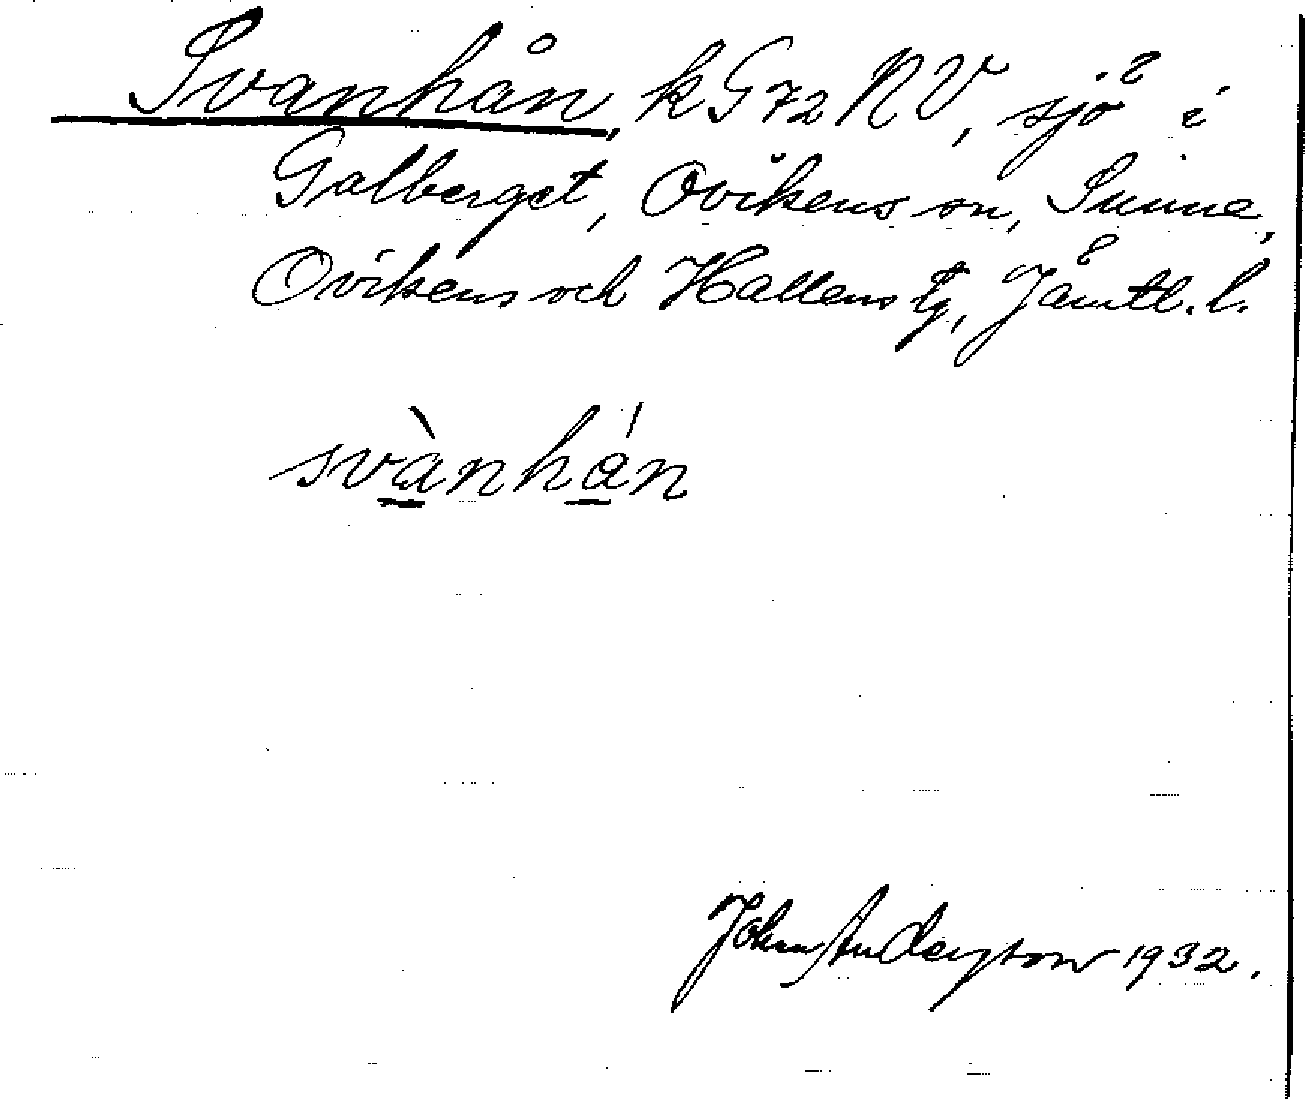 Svanhån, k G72 NV, sjö i
Galberget, Ovikens sn, Sunne,
Ovikens och Hallens tg, Jämtl. l.
svànhán
John Anderson 1932.